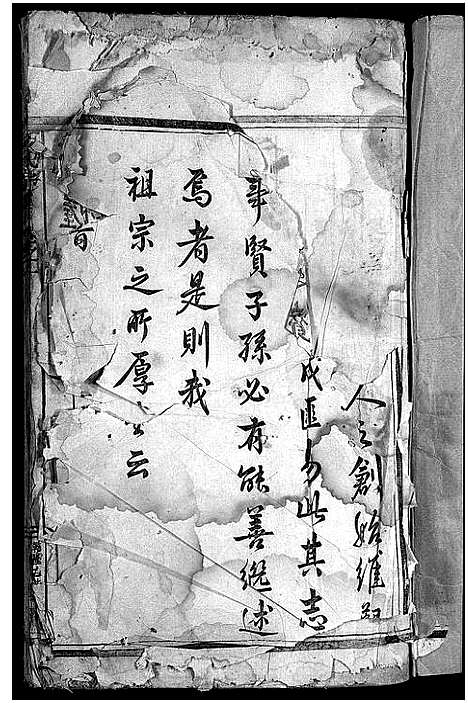 人之創始維艱
成匪易此其志
事賢子孫必有能善繼述
焉者是則我
祖宗之所厚望云